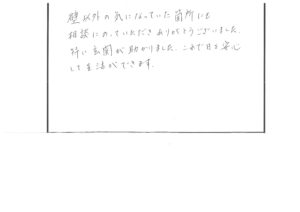 壁以外の気になっていた箇所にも
相談にのっていただきありがとうございました。
玄関が助かりました。これで日々安心
して生活ができます。